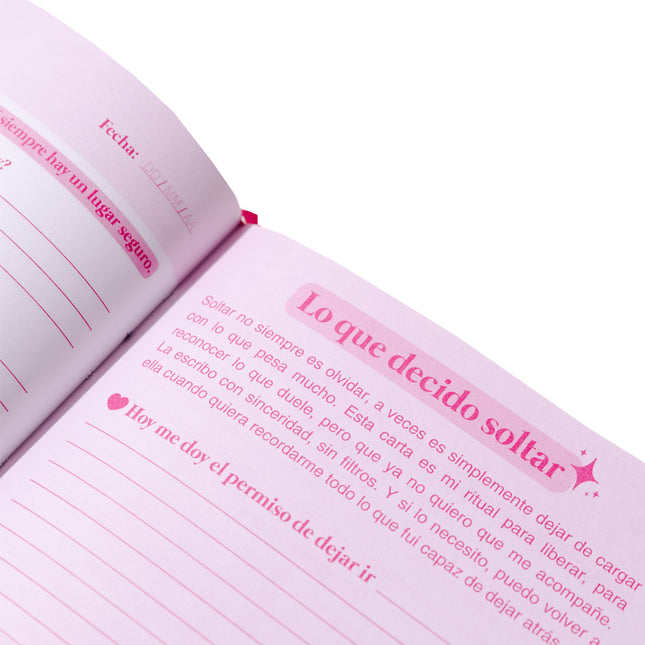 Fecha: DD/MM/AA
siempre hay un lugar seguro.
?
Lo que decido soltar
Soltar no siempre es olvidar, a veces es simplemente dejar de cargar
con lo que pesa mucho. Esta carta es mi ritual para liberar, para
reconocer lo que duele, pero que ya no quiero que me acompañe.
La escribo con sinceridad, sin filtros. Y si lo necesito, puedo volver a
ella cuando quiera recordarme todo lo que fui capaz de dejar atrás
Hoy me doy el permiso de dejar ir